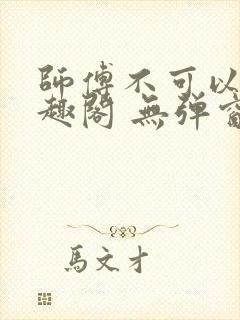 師傅不可以
趣閣 無彈窗
馬文才